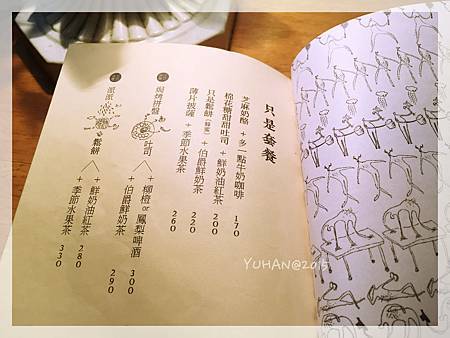 只是套餐
芝麻奶酪 + 多一點牛奶咖啡 170
棉花糖甜甜吐司 + 鮮奶油紅茶 200
只是鬆餅(蜂蜜) + 伯爵鮮奶茶 220
薄片披薩 + 季節水果茶 260
焗烤拼盤
吐司 + 柳橙or鳳梨啤酒 300
+ 伯爵鮮奶茶 290
派派
鬆餅 + 鮮奶油紅茶 280
+ 季節水果茶 330
YUHAN@2015